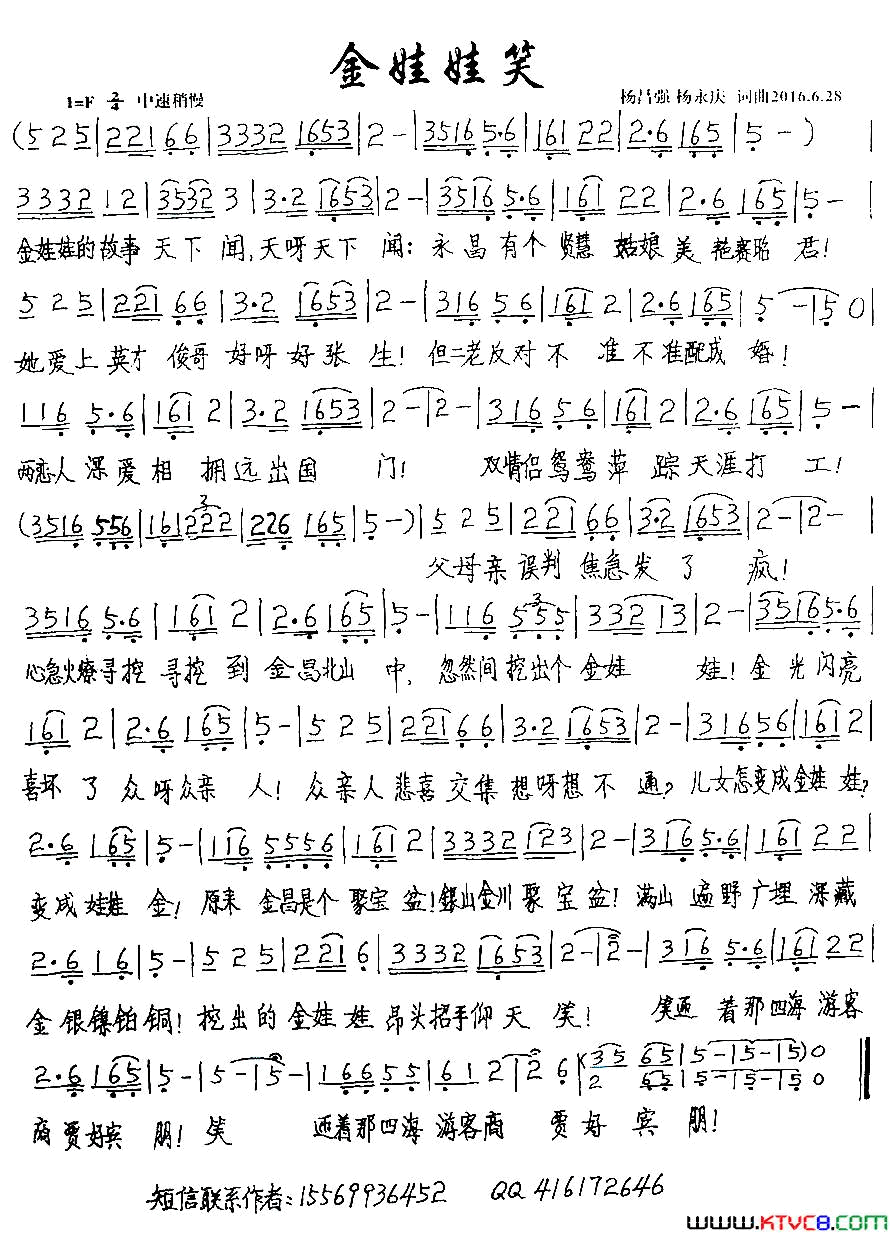 金娃娃笑
1=F 2/4 中速稍慢 杨昌强 杨永庆 词曲2016.6.28
(5 2 5|2 2 1 6 6|3 3 3 2 1 6 5 3|2 -|3 5 1 6 5·6|1 6 1 2 2|2·6 1 6 5|5 -)|
3 3 3 2 1 2|3 5 3 2 3|3·2 1 6 5 3|2 -|3 5 1 6 5·6|1 6 1 2 2|2·6 1 6 5|5 -|
金娃娃的故事天下闻,天呀天下闻:永昌有个贤慧姑娘美艳赛昭君!
5 2 5|2 2 1 6 6|3·2 1 6 5 3|2 -|3 1 6 5 6|1 6 1 2|2·6 1 6 5|5 -|5 0
她爱上英才俊哥好呀好张生!但二老反对不准不准配成婚!
1 1 6 5·6|1 6 1 2|3·2 1 6 5 3|2 -|2 -|3 1 6 5 6|1 6 1 2|2·6 1 6 5|5 -
两恋人深爱相拥远出国门!双情侣鸳鸯萍踪天涯打工!
(3 5 1 6 5 5 6|1 6 1 2 2 2|2 2 6 1 6 5|5 -)|5 2 5|2 2 1 6 6|3·2 1 6 5 3|2 -|2 -
3
父母亲误判焦急发了疯!
3 5 1 6 5·6|1 6 1 2|2·6 1 6 5|5 -|1 1 6 5 5 5|3 3 2 1 3|2 -|3 5 1 6 5·6
3
心急火燎寻挖寻挖到金昌北山中,忽然间挖出个金娃娃!金光闪亮
1 6 1 2|2·6 1 6 5|5 -|5 2 5|2 2 1 6 6|3·2 1 6 5 3|2 -|3 1 6 5 6|1 6 1 2
喜坏了众呀众亲人!众亲人悲喜交集想呀想不通?儿女怎变成金娃娃?
2·6 1 6 5|5 -|1 1 6 5 5 5 6|1 6 1 2|3 3 3 2 1 2 3|2 -|3 1 6 5·6|1 6 1 2 2
变成娃娃金!原来金昌是个聚宝盆!银山金川聚宝盆!满山遍野广埋深藏
2·6 1 6|5 -|5 2 5|2 2 1 6|3 3 3 2 1 6 5 3|2 -|2 -|3 1 6 5·6|1 6 1 2 2
金银镍铂铜!挖出的金娃娃昂头招手仰天笑!笑迎着那四海游客
2·6 1 6 5|5 -|5 -|5 -|1 6 6 5 5|6 1 2|2 6(3 5 6 5|5 -|5 -|5)0
2 6 5|5 -|5 -|5 0
商贾好宾朋!笑迎着那四海游客商贾好宾朋!
短信联系作者:15569936452 QQ 416172646
www.KTVC8.com